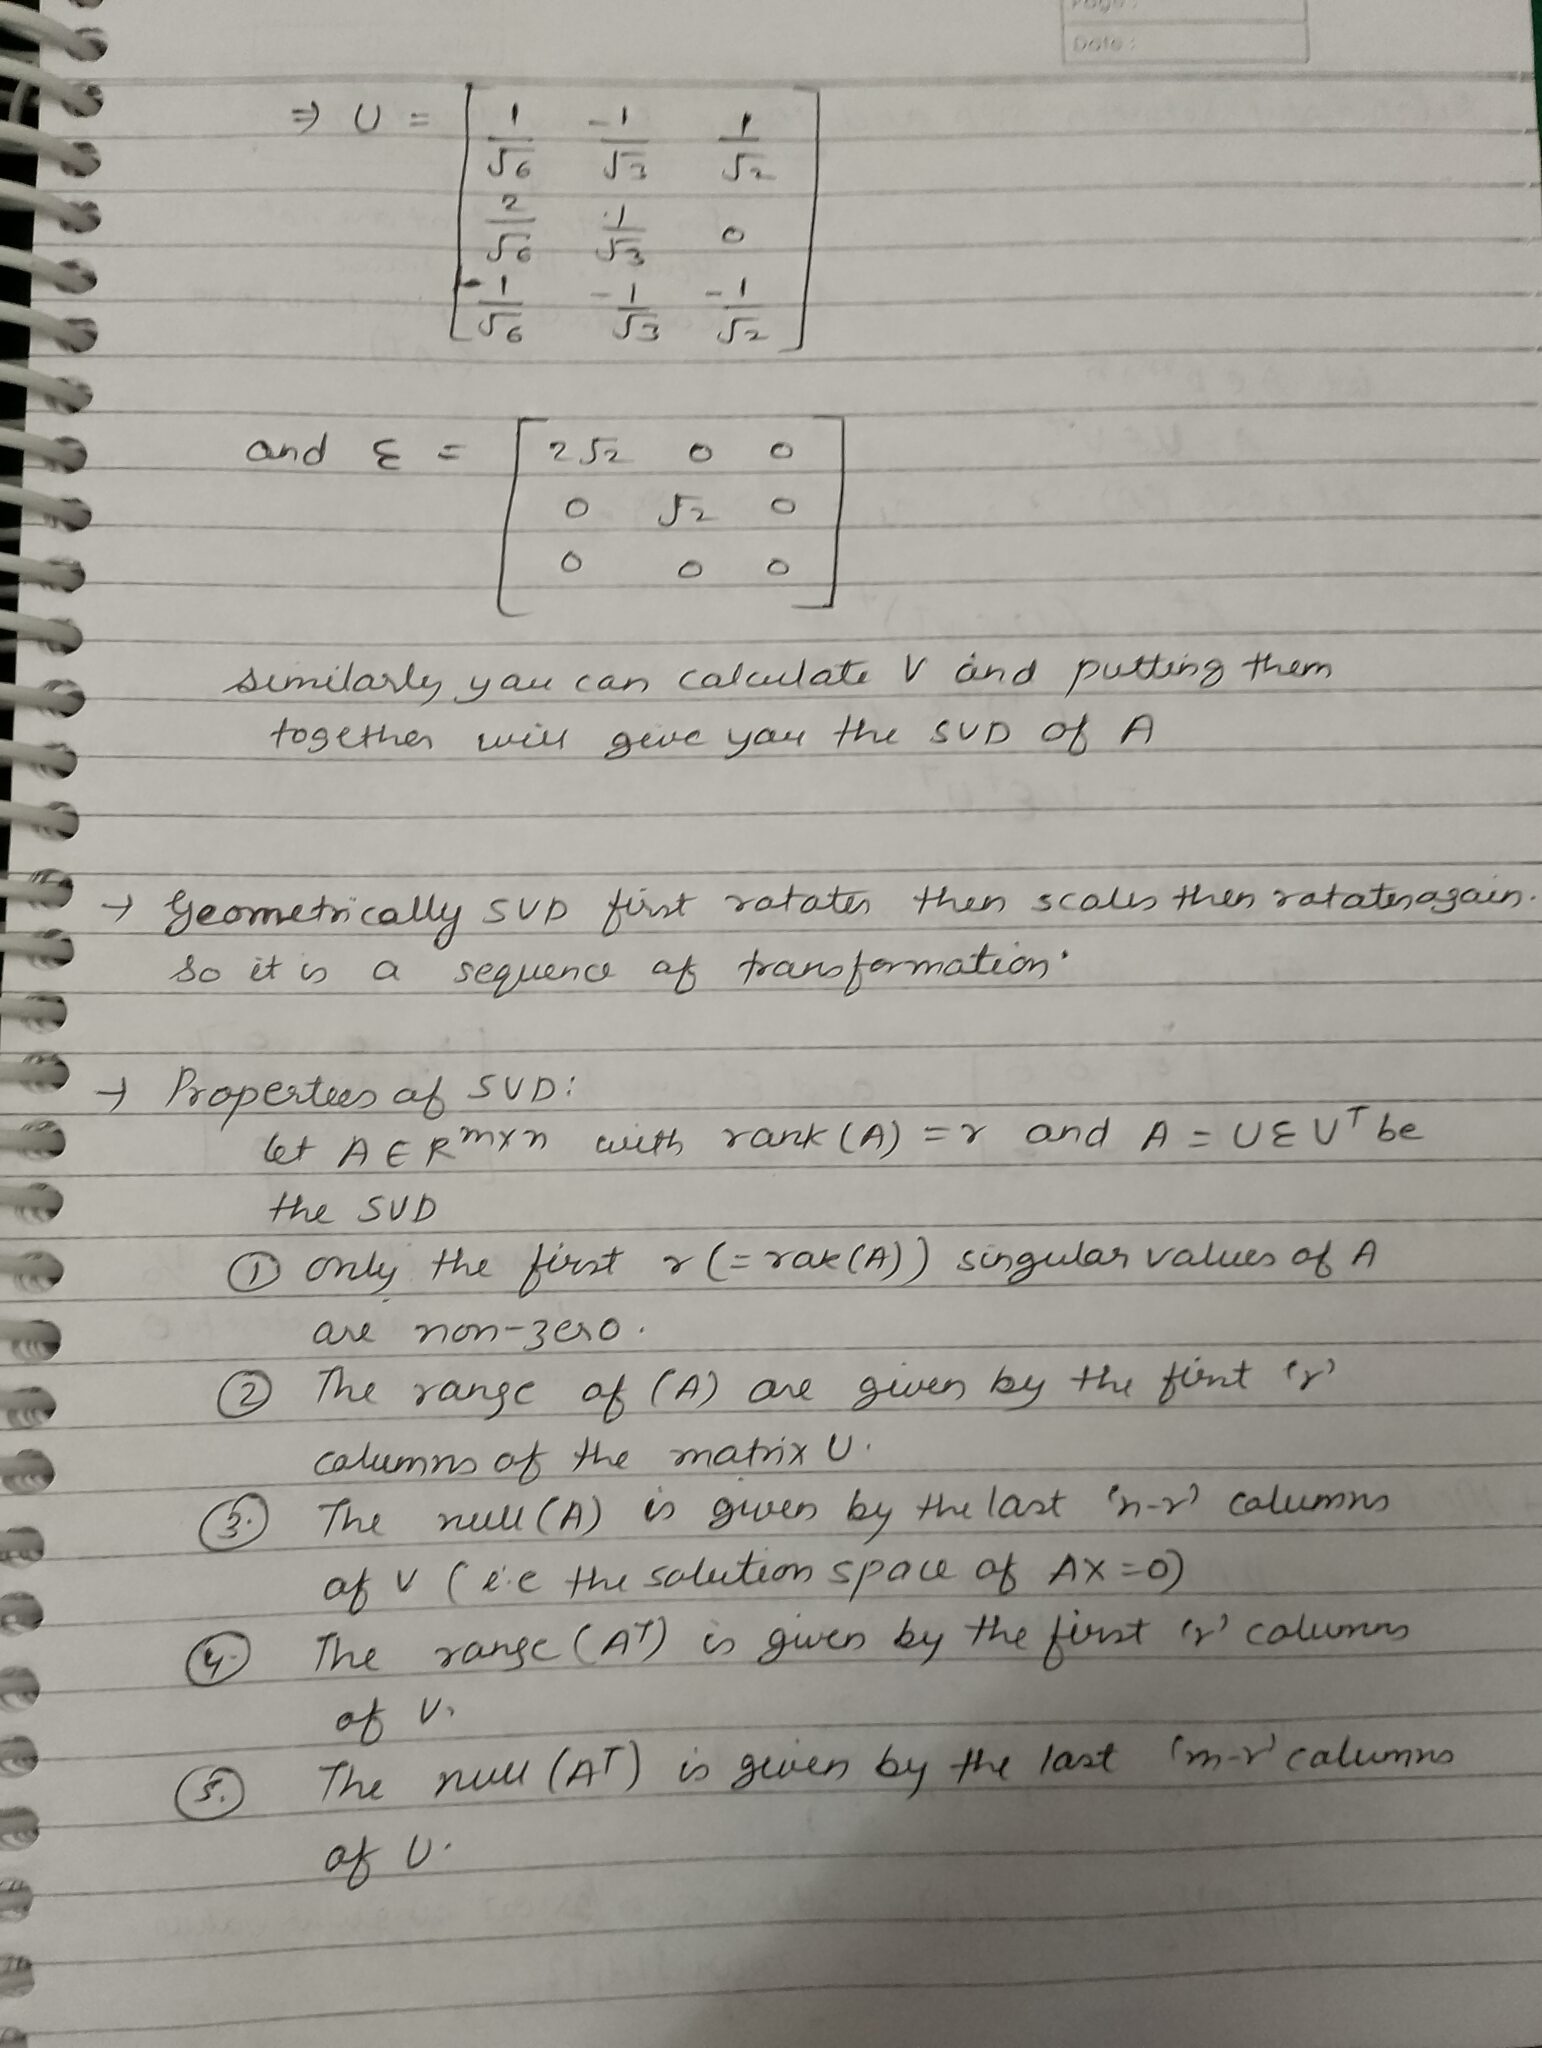 Page:
Date:
⇒ U = [ 1/√6 -1/√3 1/√2
2/√6 1/√3 0
1/√6 -1/√3 -1/√2 ]
and Ɛ = [ 2√2 0 0
0 √2 0
0 0 0 ]
similarly you can calculate V and putting them
together will give you the SVD of A
→ Geometrically SVD first rotates then scales then rotates again.
So it is a sequence of transformation.
→ Properties of SVD:
let A ∈ R^{m×n} with rank (A) = r and A = UƐV^T be
the SVD
① only the first r (= rak(A)) singular values of A
are non-zero.
② The range of (A) are given by the first 'r'
columns of the matrix U.
③. The null (A) is given by the last 'n-r' columns
of V (i.e the solution space of AX=0)
④. The range (A^T) is given by the first 'r' columns
of V.
⑤. The null (A^T) is given by the last 'm-r' columns
of U.